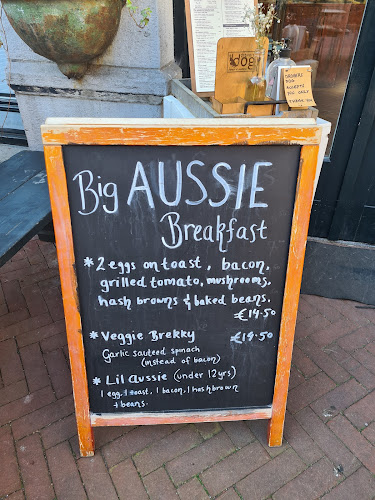 Big AUSSIE
Breakfast
* 2 eggs on toast, bacon,
grilled tomato, mushrooms,
hash browns & baked beans.
€14.50
* Veggie Brekky €14.50
Garlic sauteed spinach
(instead of bacon)
* Lil Aussie (under 12yrs)
1 egg, 1 toast, 1 bacon, 1 hashbrown
+ beans.
dog